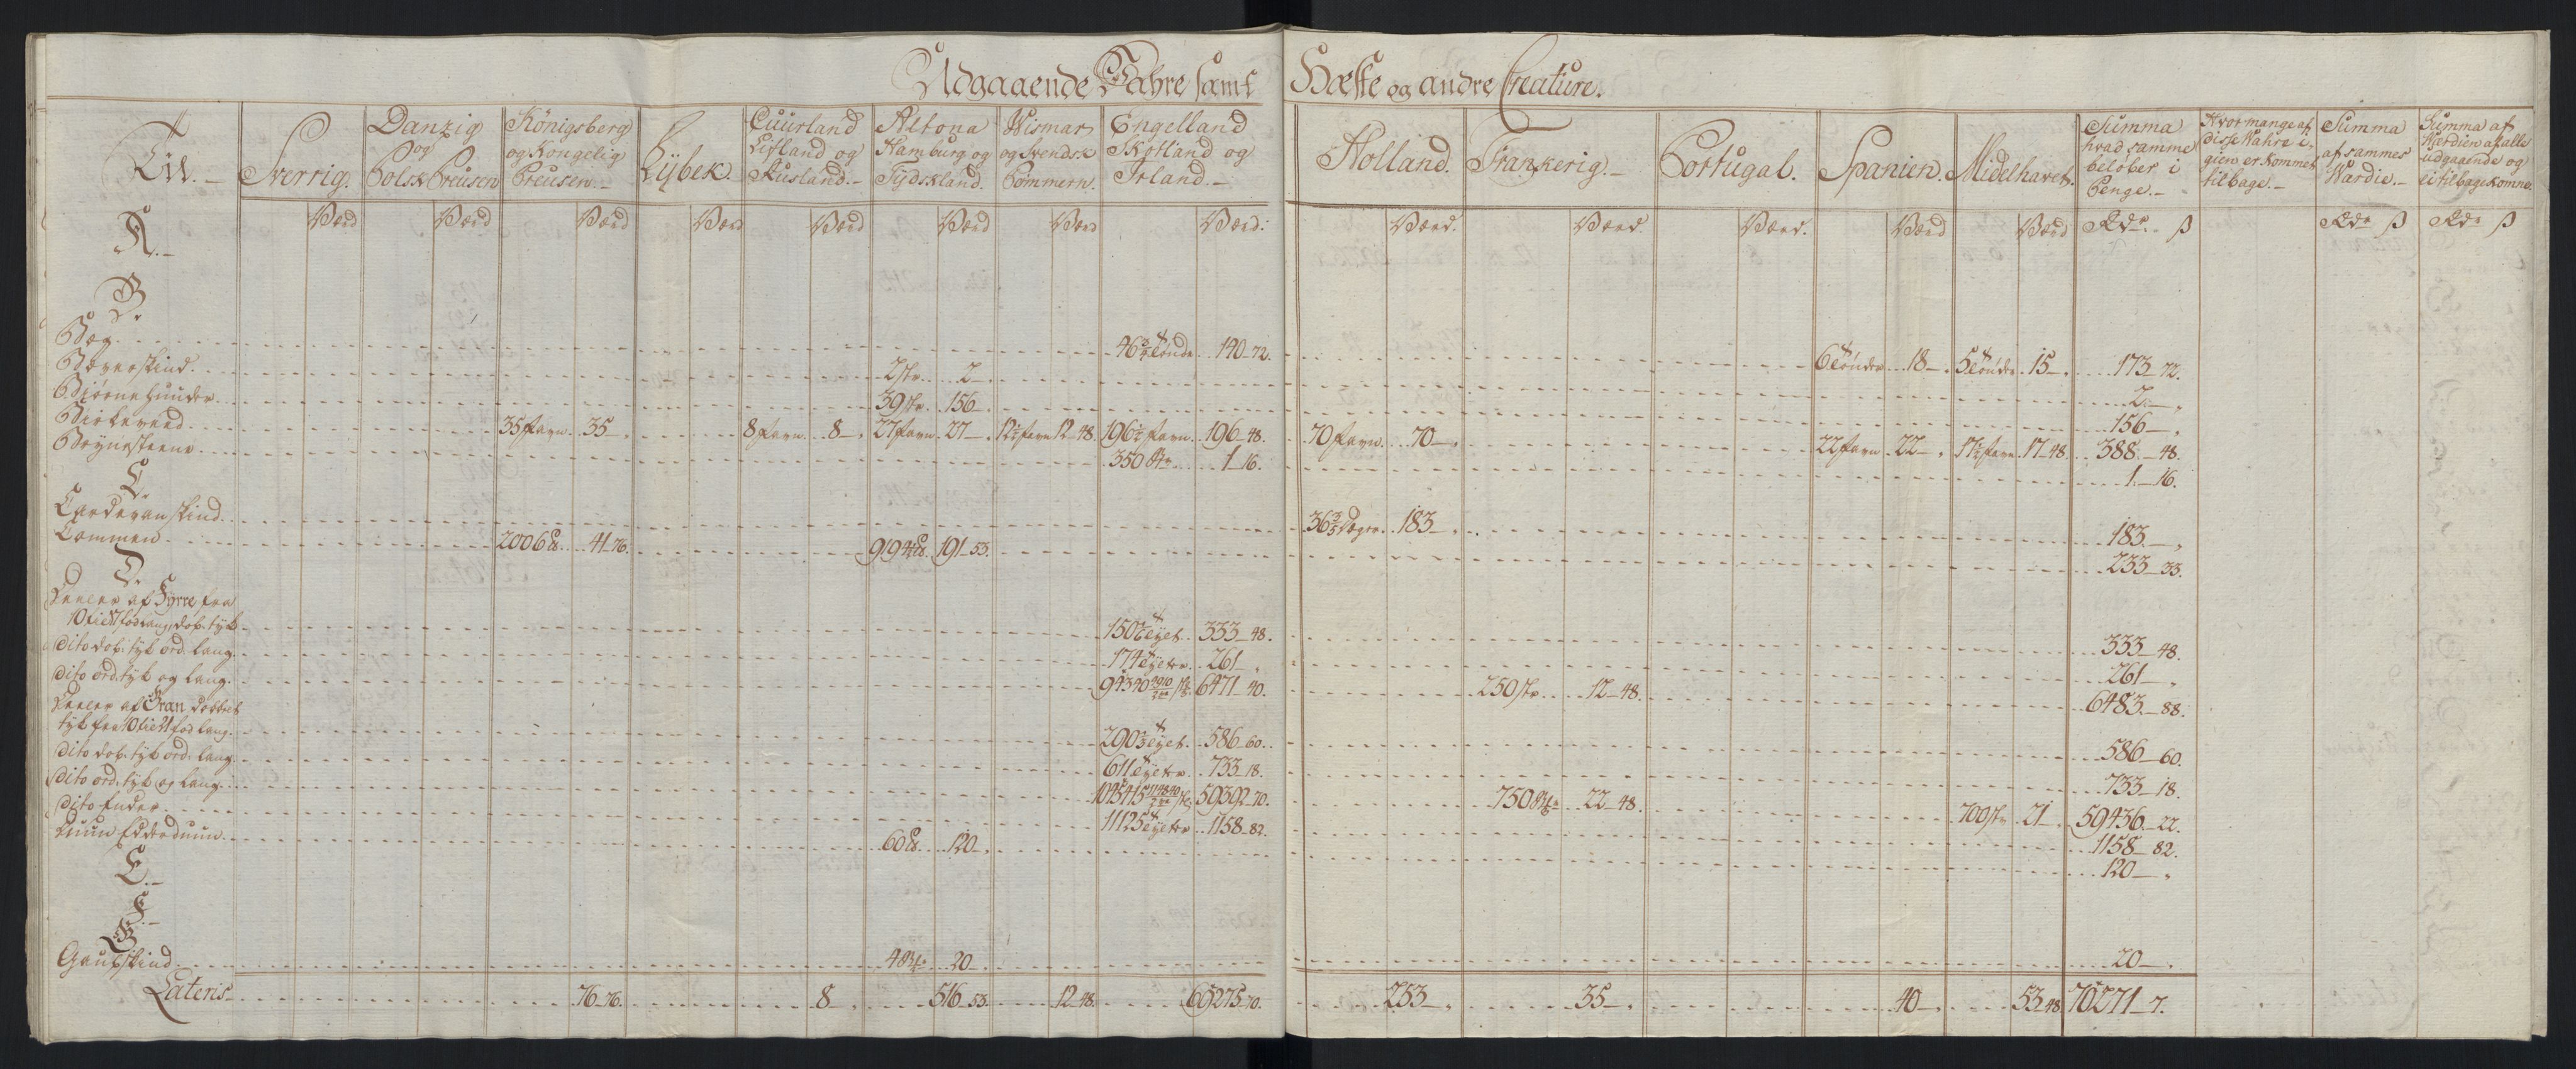 Udgaaende Wahre samt Hæste og andre Creature.
Til.
Sverrig.
Danzig og Polsk Preusen
Königsberg og Kongelig Preusen.
Lÿbek.
Cuurland Lifland og Rusland.
Altona Hamburg og Tÿdskland.
Wismar og Svendsk Pommern.
Engelland Skotland og Irland.
Holland.
Frankerig.
Portugal.
Spanien.
Midelhavet.
Summa hvad samme beløber i Penge.
Hvor mange af disse Wahre igien er kommet tilbage.
Summa af sammes Wærdie.
Summa af Wærdien af alle udgaaende og ei tilbagekomne.
Værd Værd Værd Værd Værd Værd Værd Værd. Værd. Værd. Værd. Værd Værd Rdr. ß Rdr ß Rdr ß
A.
B.
Bæg. 46 3/4 Tønde 140-72. 6 Tønder 18- 5 Tønder 15- 173-72.
Bæverskind. 2 str. 2- 2-
Biørnehuuder. 39 str. 156 156-
Birkeveed. 35 favn. 35- 8 favn. 8- 27 favn. 27- 12 1/2 favn 12-48. 196 1/2 favn. 196-48. 70 favn. 70- 22 favn 22- 17 1/2 favn 17-48. 388-48.
Brÿnesteene. 350 1-16. 1-16.
C.
Carduanskind. 36 3/5 Deger. 183- 183-
Commen. 2006 ℔. 41-76. 9194 ℔. 191-53. 233-33.
D.
Deeler af Fyrre fra
10 til 21 fod lang, dob. tÿk. 150 tÿlt. 333-48. 333-48.
Dito dob. tÿk ord. lang. 174 tÿlter. 261- 261-
Dito ord. tÿk og lang. 94340 6471-40. 250 str. 12-48. 6483-88.
Deeler af Gran dobbelt
tÿk fra 10 til 21 fod lang. 290 tÿlt. 586-60. 586-60.
Dito dob. tÿk ord. lang. 611 tÿlter. 733-18. 733-18.
Dito ord. tÿk og lang. 1045415 59392-70. 750 22-48. 700 str. 21- 59436-22.
Dito Ender. 11125 tÿlter 1158-82. 1158-82.
Duun Edderduun. 60 ℔. 120- 120-
E.
F.
G.
Gaupskind. 4 20- 20-
Lateris. 76-76. 8- 516-53. 12-48. 65275-70. 253- 35- 40- 53-48. 70271-7.